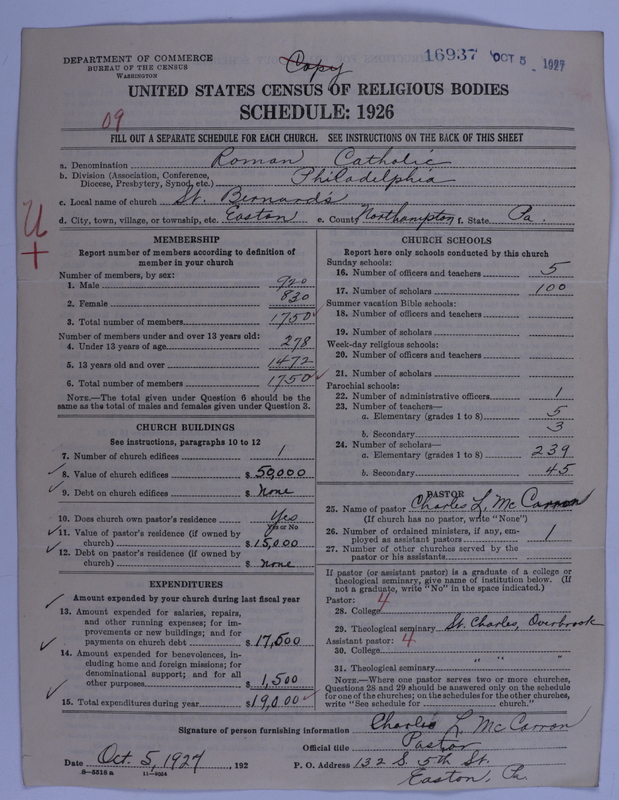 DEPARTMENT OF COMMERCE
BUREAU OF THE CENSUS
WASHINGTON
Copy
16937 OCT 5 1927
UNITED STATES CENSUS OF RELIGIOUS BODIES
SCHEDULE: 1926
09
FILL OUT A SEPARATE SCHEDULE FOR EACH CHURCH. SEE INSTRUCTIONS ON THE BACK OF THIS SHEET
a. Denomination Roman Catholic
b. Division (Association, Conference, Diocese, Presbytery, Synod, etc.) Philadelphia
c. Local name of church St. Bernard's
d. City, town, village, or township, etc. Easton e. County Northampton f. State Pa.
U
+
MEMBERSHIP
Report number of members according to definition of
member in your church
Number of members, by sex:
1. Male 920
2. Female 830
3. Total number of members 1750
Number of members under and over 13 years old:
4. Under 13 years of age 278
5. 13 years old and over 1472
6. Total number of members 1750
NOTE.—The total given under Question 6 should be the
same as the total of males and females given under Question 3.
CHURCH BUILDINGS
See instructions, paragraphs 10 to 12
7. Number of church edifices 1
8. Value of church edifices $ 50,000
9. Debt on church edifices $ None
10. Does church own pastor's residence Yes
Yes or No
11. Value of pastor's residence (if owned by
church) $ 15,000
12. Debt on pastor's residence (if owned by
church) $ None
EXPENDITURES
Amount expended by your church during last fiscal year
13. Amount expended for salaries, repairs,
and other running expenses; for im-
provements or new buildings; and for
payments on church debt $ 17,500
14. Amount expended for benevolences, in-
cluding home and foreign missions; for
denominational support; and for all
other purposes $ 1,500
15. Total expenditures during year $ 19,000
CHURCH SCHOOLS
Report here only schools conducted by this church
Sunday schools:
16. Number of officers and teachers 5
17. Number of scholars 100
Summer vacation Bible schools:
18. Number of officers and teachers
19. Number of scholars
Week-day religious schools:
20. Number of officers and teachers
21. Number of scholars
Parochial schools:
22. Number of administrative officers 1
23. Number of teachers—
a. Elementary (grades 1 to 8) 5
b. Secondary 3
24. Number of scholars—
a. Elementary (grades 1 to 8) 239
b. Secondary 45
PASTOR
25. Name of pastor Charles L. McCarron
(If church has no pastor, write "None")
26. Number of ordained ministers, if any, em-
ployed as assistant pastors 1
27. Number of other churches served by the
pastor or his assistants
If pastor (or assistant pastor) is a graduate of a college or
theological seminary, give name of institution below. (If
not a graduate, write "No" in the space indicated.)
Pastor: 4
28. College
29. Theological seminary St. Charles, Overbrook
Assistant pastor: 4
30. College
31. Theological seminary " " "
NOTE.—Where one pastor serves two or more churches,
Questions 28 and 29 should be answered only on the schedule
for one of the churches; on the schedules for the other churches,
write "See schedule for church."
Signature of person furnishing information Charles L. McCarron
Official title Pastor
Date Oct. 5, 1927, 192 P. O. Address 132 S. 5th St.
8—5518 a 11—9054 Easton, Pa.